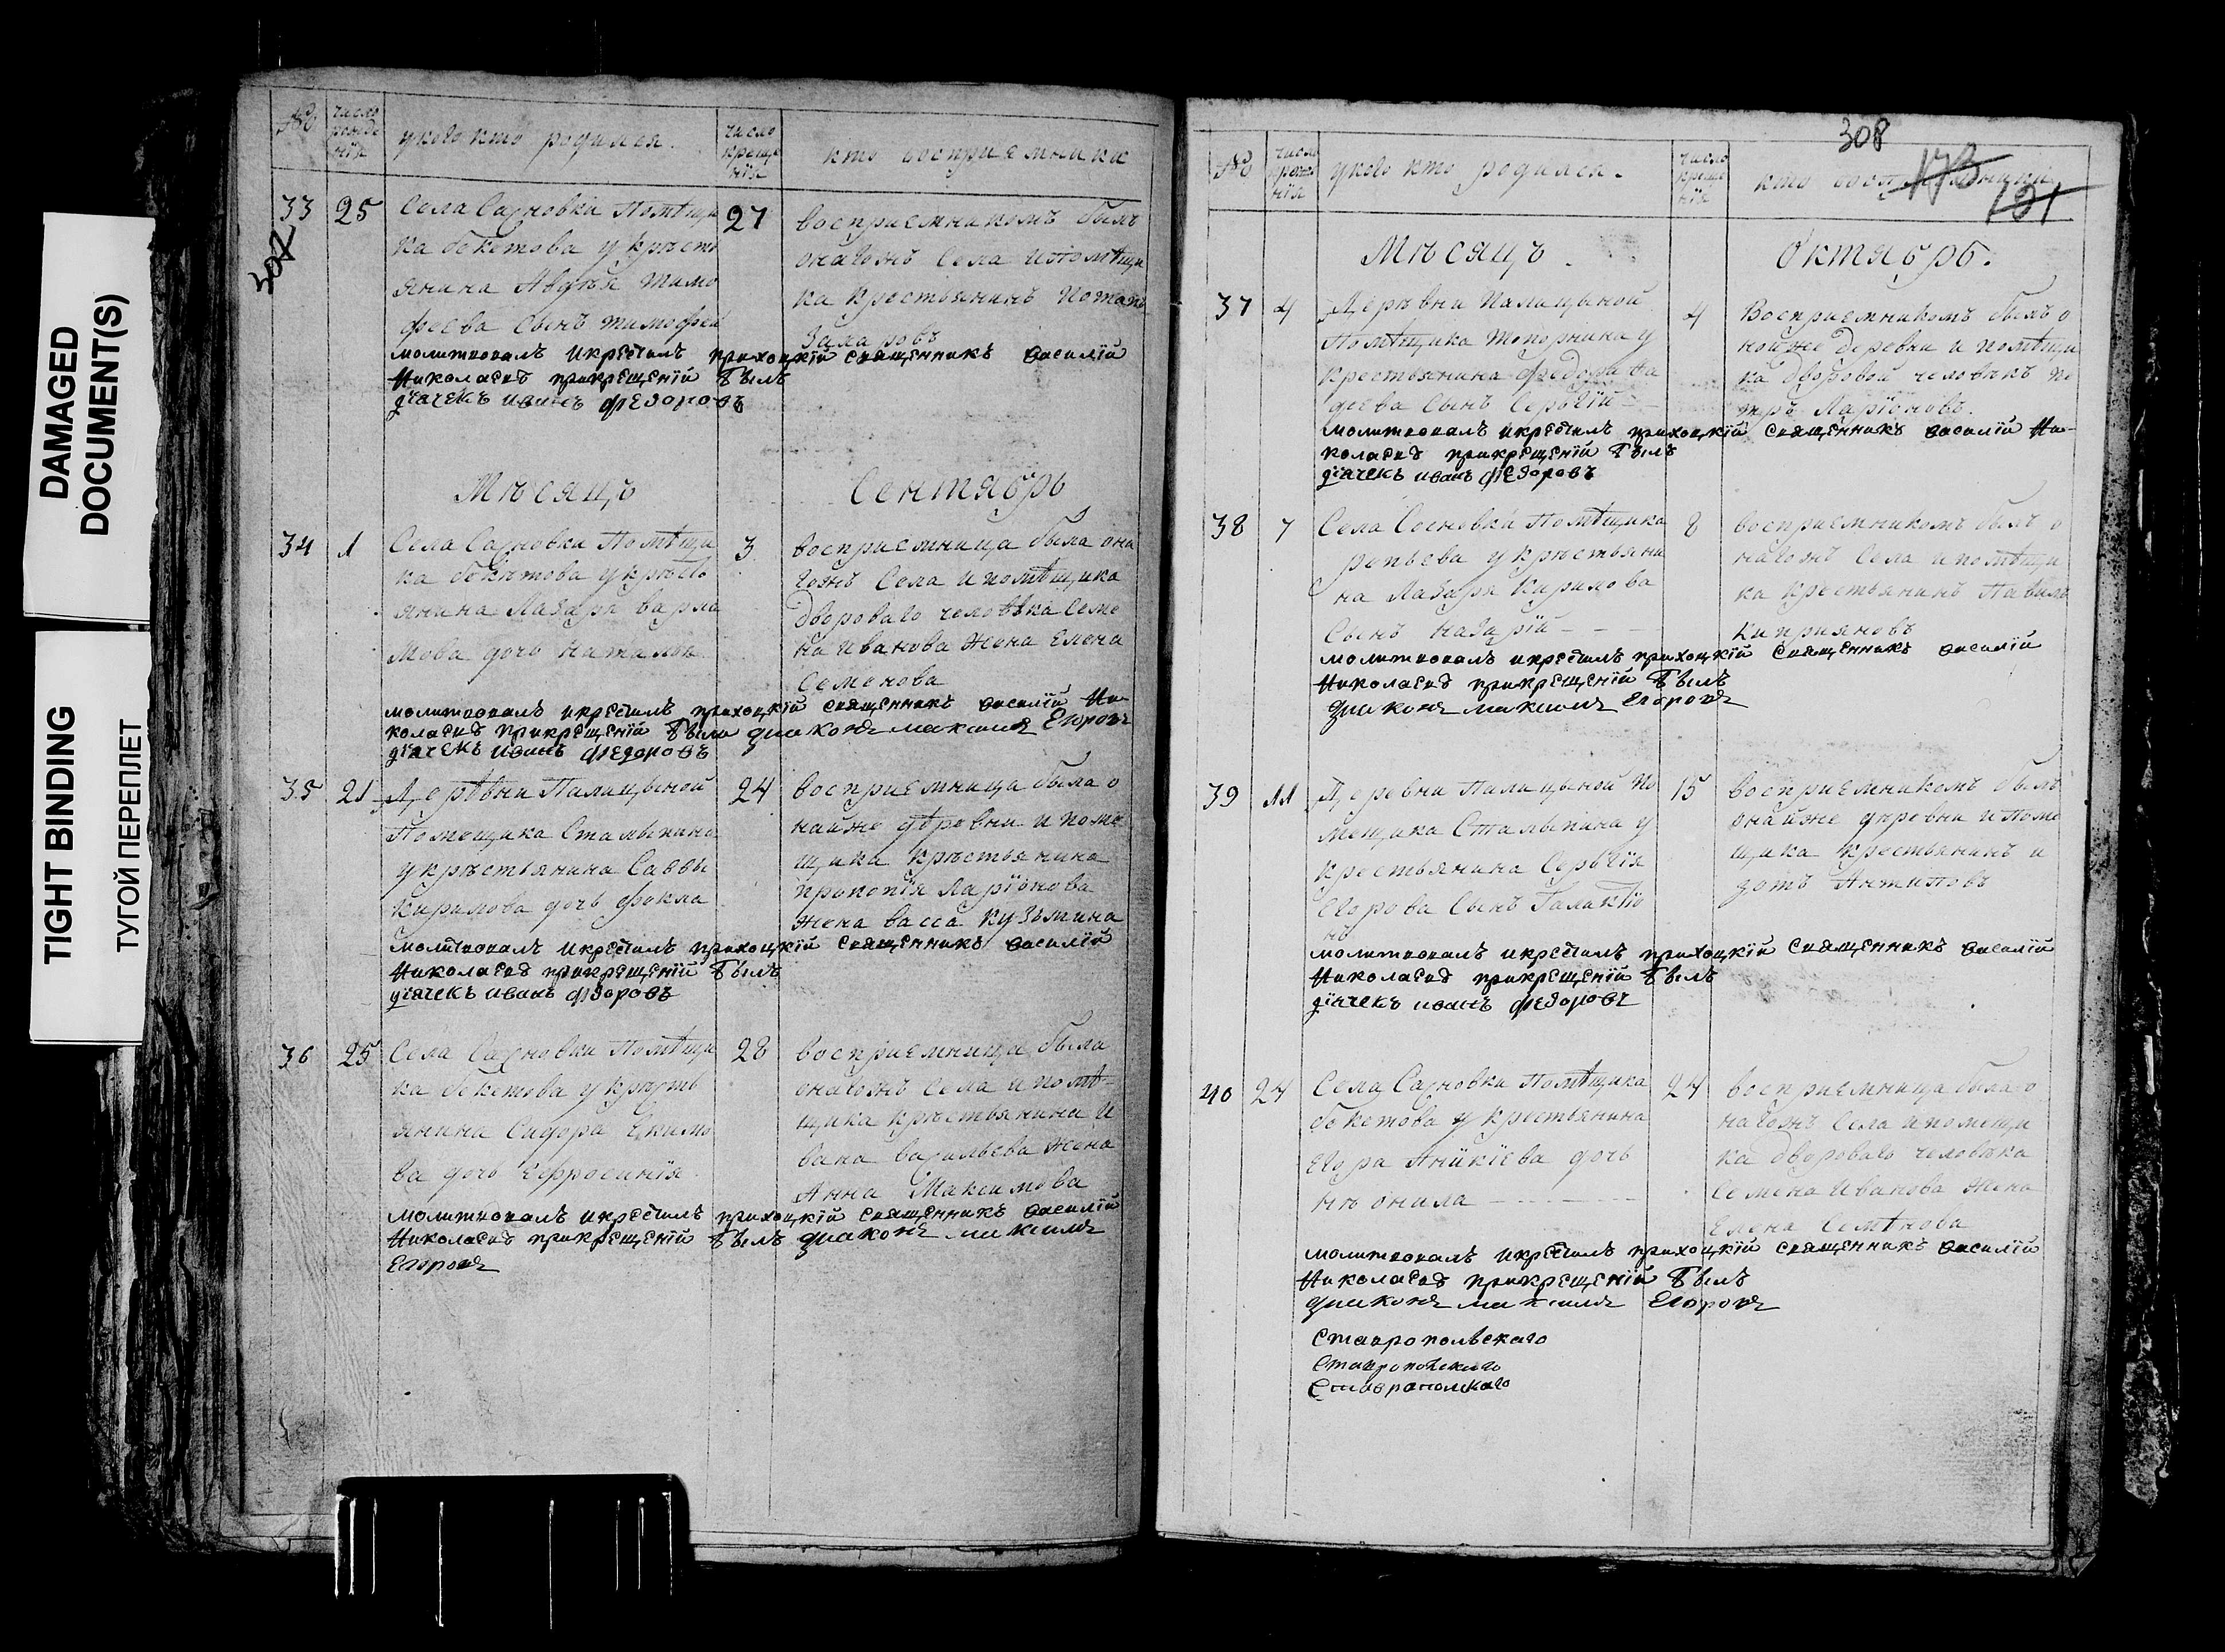 DAMAGED
DOCUMENT(S)
TIGHT BINDING
ТУГОЙ ПЕРЕПЛЕТ
307
№
число
рожде
нїя
у кого кто родился.
число
креще
нїя
кто восприемники
33
25
Села Сосновки Помѣщи
ка бекетова у крѣсть
янина Авдѣя тимо
феева сынъ тимофей
27
восприемникомъ былъ
оногожъ села и помѣщи
ка крестьянинъ Потапъ
Захаровъ
молитвовалъ икрестилъ приходцкїй священникъ василїй
Николаевъ прикрещенїи былъ
дїячекъ иванъ федоровъ
Мѣсяцъ
Сентябрь
34
1
Села Сосновки Помѣщи
ка бекѣтова у крѣсть
янина Лазаря варла
мова дочь наталья
3
восприемница была оно
гожъ села и помѣщика
дворового человѣка семе
на иванова жена елена
Семенова
молитвовалъ икрестилъ приходцкїй священникъ василїй Ни-
колаевъ прикрещенїи были диаконъ максимъ Егоровъ
дїячекъ иванъ федоровъ
35
21
Дерѣвни Палицыной
Помещика Сталыпина
у крѣстьянина Саввы
Кирилова дочь фекла
24
восприемница была о
найже дѣревни и поме
щика крѣстьянина
прокопїя Ларїонова
жена васса кузьмина
молитвовалъ икрестилъ приходцкїй священникъ василїй
Николаевъ прикрещенїи былъ
дїячекъ иванъ федоровъ
36
25
Села Сосновки Помѣщи
ка бекетова у крѣсть
янина Сидора Екимо
ва дочь ефросинїя
28
восприемница была
оногожъ села и помѣ-
щика крѣстьянина и
вана васильева жена
Анна Максимова
молитвовалъ икрестилъ приходцкїй священникъ василїй
Николаевъ прикрещенїи былъ диаконъ максимъ
Егоровъ
308
173
121
№
число
нїя
у кого кто родился.
число
креще
нїя
кто
Мѣсяцъ
Октябрь.
37
4
Дерѣвни Палицыной
Помѣщика топорнина у
крестьянина федора
сынъ Сергѣй
4
Восприемникомъ былъ о
нойже деревни и помѣщи
ка дворовой человѣкъ пе
тръ Ларїоновъ.
молитвовалъ икрестилъ приходцкїй священникъ василїй Ни-
колаевъ прикрещенїи былъ
дїячекъ иванъ федоровъ
38
7
Села Сосновки Помѣщика
репьева у крѣстьяни
на Лазаря Кирилова
Сынъ назарїй - - -
8
восприемникомъ былъ о
ногожъ села и помѣщи
ка крестьянинъ Павилъ
Киприяновъ
молитвовалъ икрестилъ приходцкїй священникъ василїй
Николаевъ прикрещенїи былъ
диаконъ максимъ Егоровъ
39
11
Деревни Палицыной по
мещика Сталыпина у
крестьянина Сергѣя
егорова сынъ Галактїо
нъ
15
восприемникомъ былъ
онайже деревни и поме
щика крестьянинъ и
Антиповъ
молитвовалъ икрестилъ приходцкїй священникъ василїй
Николаевъ прикрещенїи былъ
дїячекъ иванъ федоровъ
40
24
Села Сосновки Помѣщика
бекетова у крестьянина
Егора Аникїева дочь
нѣонила
24
восприемница была о
ногожъ села и помещи
ка дворового человѣка
семена иванова жена
Елена Семѣнова
молитвовалъ икрестилъ приходцкїй священникъ василїй
Николаевъ прикрещенїи былъ
диаконъ максимъ Егоровъ
Ставропольскаго
Ставропольскаго
Ставропольскаго